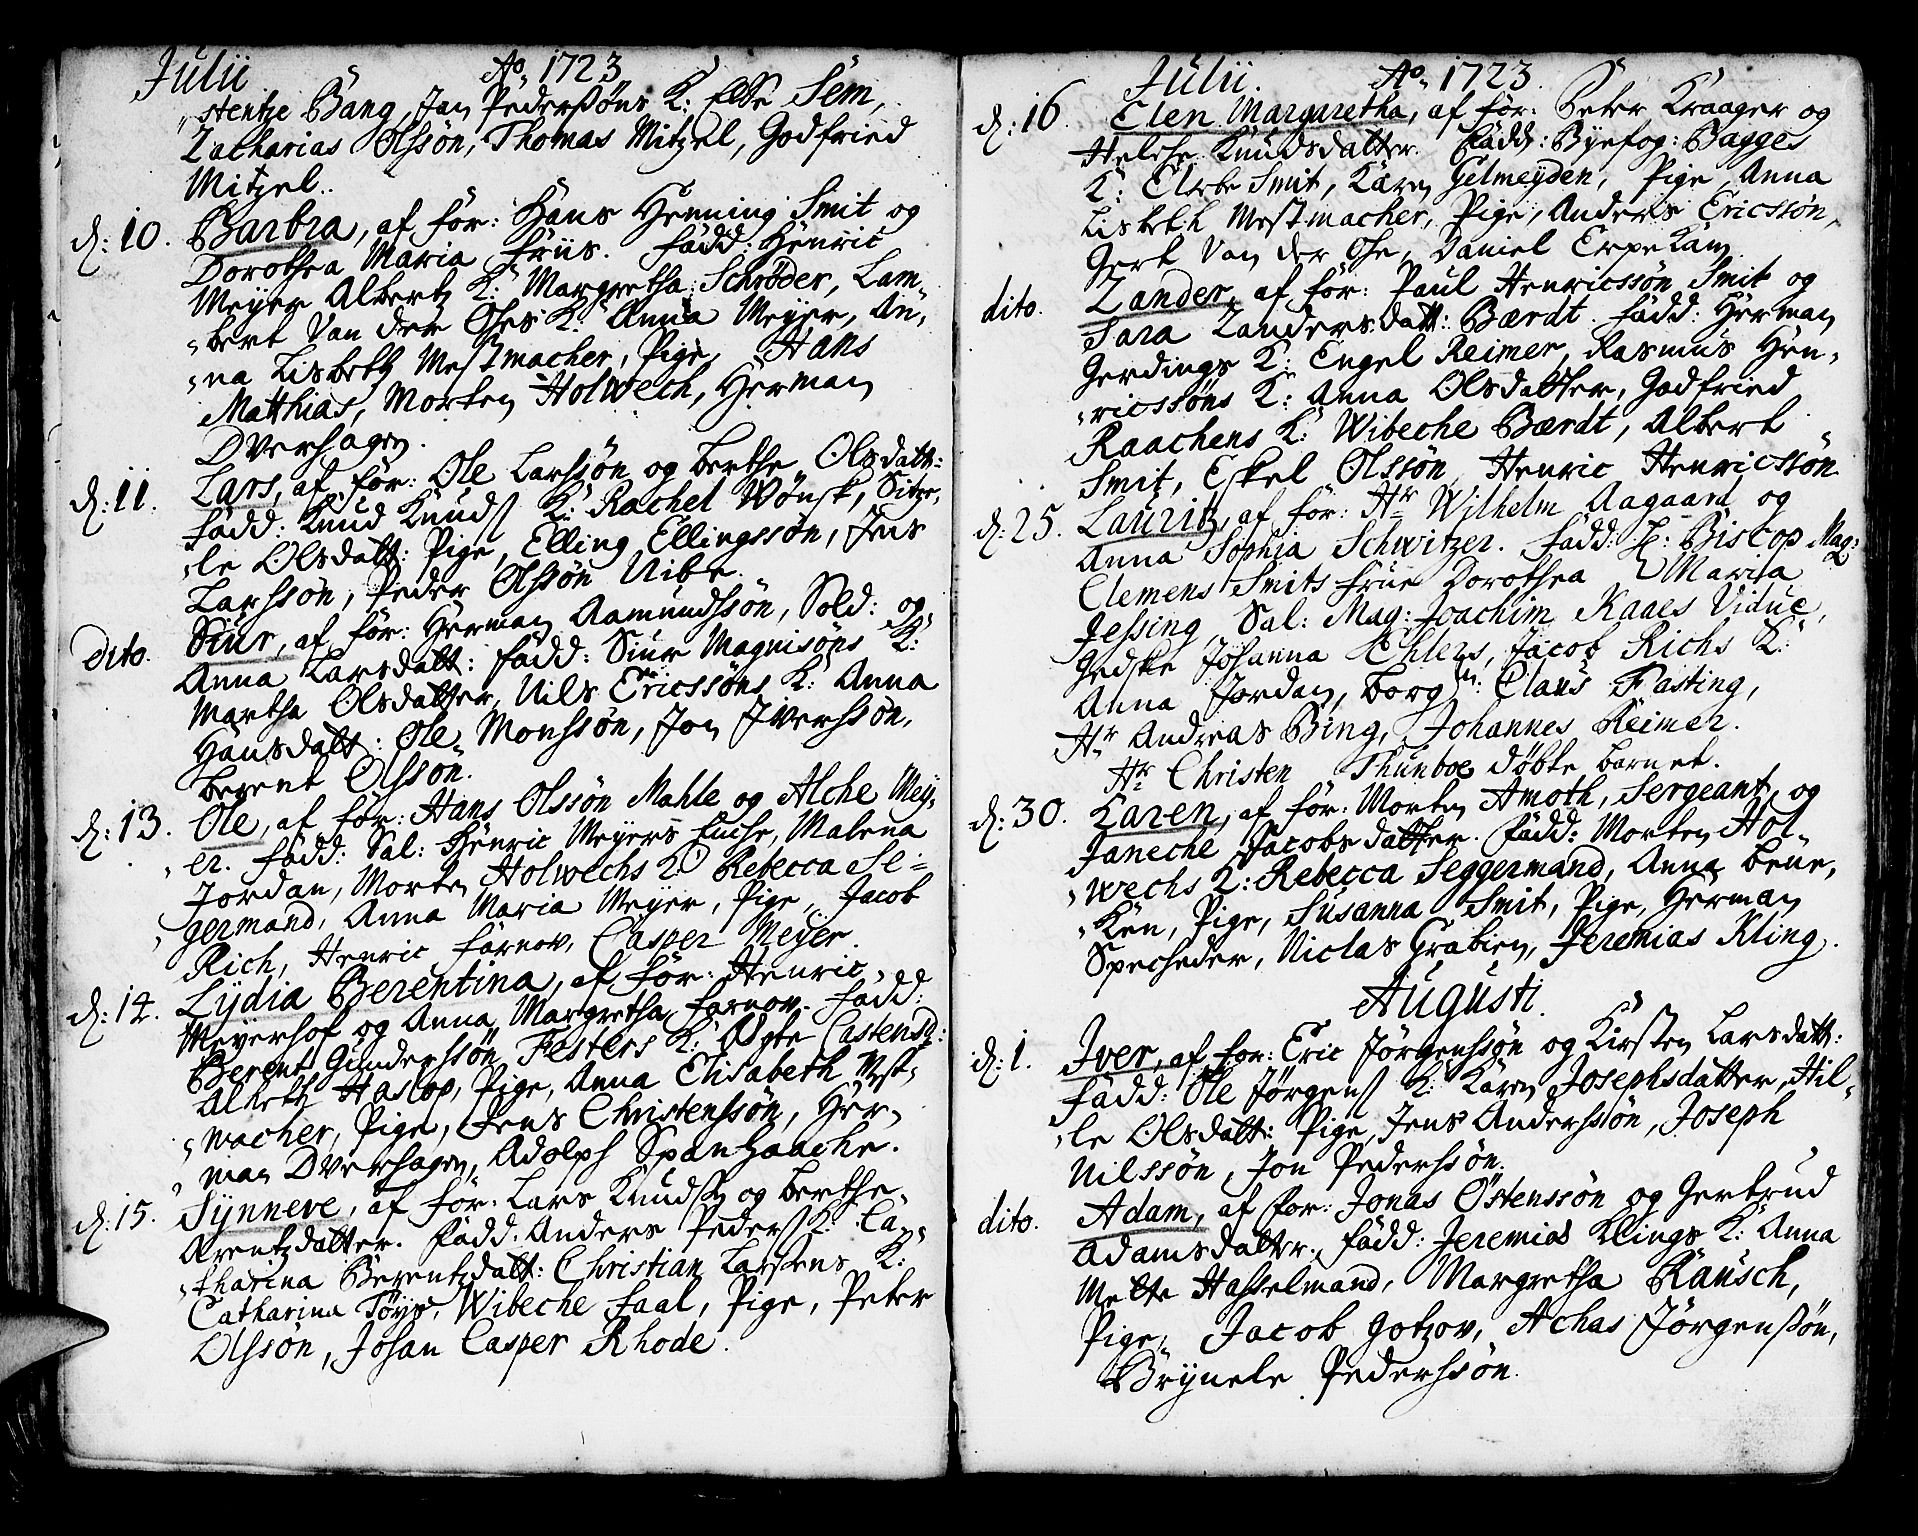 Julii Ao 1723
"stentze Bang, Jan Pederßøns K: Else Sem,
Zacharias Olssøn, Thomas Mitzel, Godfried
Mitzel.
d: 10. Barbra, af for: Hans Henning Smit og
Dorothea Maria Friis. Fadd: Henric
Meyer Albertz K: Margretha Schrøder, Lam„
„bert Van der Ohes K: Anna Meyer, An„
„na Lisbeth Mestmacher, Pige, Hans
Matthias, Morten Holwech, Herman
Dverhagen.
d: 11. Lars, af for: Ole Larssøn og Berthe Olsdatt:
Fadd: Knud Knuds K: Rachel Wønsk, Sitze„
„le Olsdatt: Pige, Elling Ellingssøn, Jens
Larssøn, Peder Olssøn Vibe.
dito. Siur, af for: Herman Aamundssøn, Sold: og
Anna Larsdatt: Fadd: Siur Magnisøns K:
Martha Olsdatter, Nils Ericssøns K: Anna
Hansdatt: Ole Monssøn, Jon Iverssøn,
Berent Olsson.
d: 13. Ole, af for: Hans Olssøn Mahle og Alche Mey„
„er. Fadd: Sal: Henric Meyers Enche, Malena
Jordan, Morten Holwechs K: Rebecca Se„
„germand, Anna Maria Meyer, Pige, Jacob
Rich, Henric Farnov, Casper Meyer.
d: 14. Lydia Berentina, af for: Henric
Meyerhof og Anna Margretha Farnov. Fadd:
Berent Gunderssøn Festers K: Aagte Castensd:
Alheth Haslop, Pige, Anna Elisabeth Mest„
„macher, Pige, Jens Christenssøn, Her„
„man Dverhagen, Adolph Spanhaache.
d: 15. Synneve, af for: Lars Knuds og Berthe
Arentzdatter. Fadd: Anders Peders K: Ca„
„tharina Berentzdatt: Christian Larsens K:
Catharina Tøys, Wibeche Faal, Pige, Peter
Olssøn, Johan Casper Rhode.
Julii. Ao 1723.
d: 16. Elen Margaretha, af for: Peter Kraager og
Helche Knudsdatter. Fadd: Byefog: Bagges
K: Elsebe Smit, Karen Gelmeyden, Pige, Anna
Lisbeth Mestmacher, Pige, Anders Ericssøn,
Gert Van der Ohe, Daniel Erpekam
dito. Zander, af for: Paul Henricssøn Smit og
Sara Zandersdatt: Bærdt. Fadd: Herman
Gerdings K: Engel Reimer, Rasmus Hen„
„ricssøns K: Anna Olsdatter, Godfried
Raachens K: Wibeche Bærdt, Albert
Smit, Eskel Olssøn, Henric Henricssøn
d: 25. Lauritz, af for: Hr Wilhelm Aagaard og
Anna Sophia Schwitzer. Fadd: H: Biscop Mag:
Clemens Smits Frue Dorothea Maria
Jessing, Sal: Mag: Joachim Kaaes Vidue,
Gedske Johanna Ehlers, Jacob Richs K:
Anna Jordan, Borgm: Claus Fasting,
Hr Andreas Bing, Johannes Reimer.
Hr Christen Thunboe døbte Barnet.
d: 30. Karen, af for: Morten Amoth, Sergeant, og
Janeche Jacobsdatter. Fadd: Morten Hol„
„wechs K: Rebecca Seggermand, Anna Bene„
„ken, Pige, Susanna Smit, Pige, Herman
Specheder, Niclas Grabien, Jeremias Kling.
Augusti.
d: 1. Iver, af for: Eric Jørgenssøn og Kirsten Larsdatt:
Fadd: Ole Jørgens K: Karen Josephsdatter, Hil„
„le Olsdatt: Pige, Jens Anderssøn, Joseph
Nilssøn, Jon Pederssøn.
dito. Adam, af for: Jonas Østenssøn og Gertrud
Adamsdatter. Fadd: Jeremias Klings K: Anna
Mette Hasselmand, Margretha Rausch,
Pige, Jacob Gotzov, Achas Jørgenßøn,
Brynele Pederssøn.